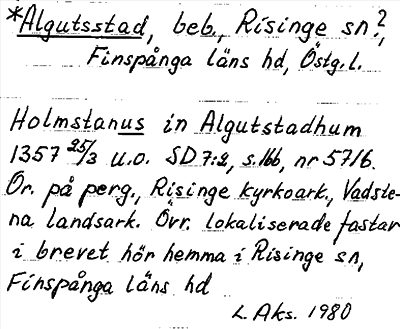 *Algutsstad, beb., Risinge sn?,
Finspånga läns hd, Östg.l.
Holmstanus in Algutstadhum
1357 25/3 u.o. SD 7:2, s.166, nr 5716.
Or. på perg., Risinge kyrkoark., Vadste-
na landsark. Övr. lokaliserade fastar
i brevet hör hemma i Risinge sn,
Finspånga läns hd
L. Aks. 1980